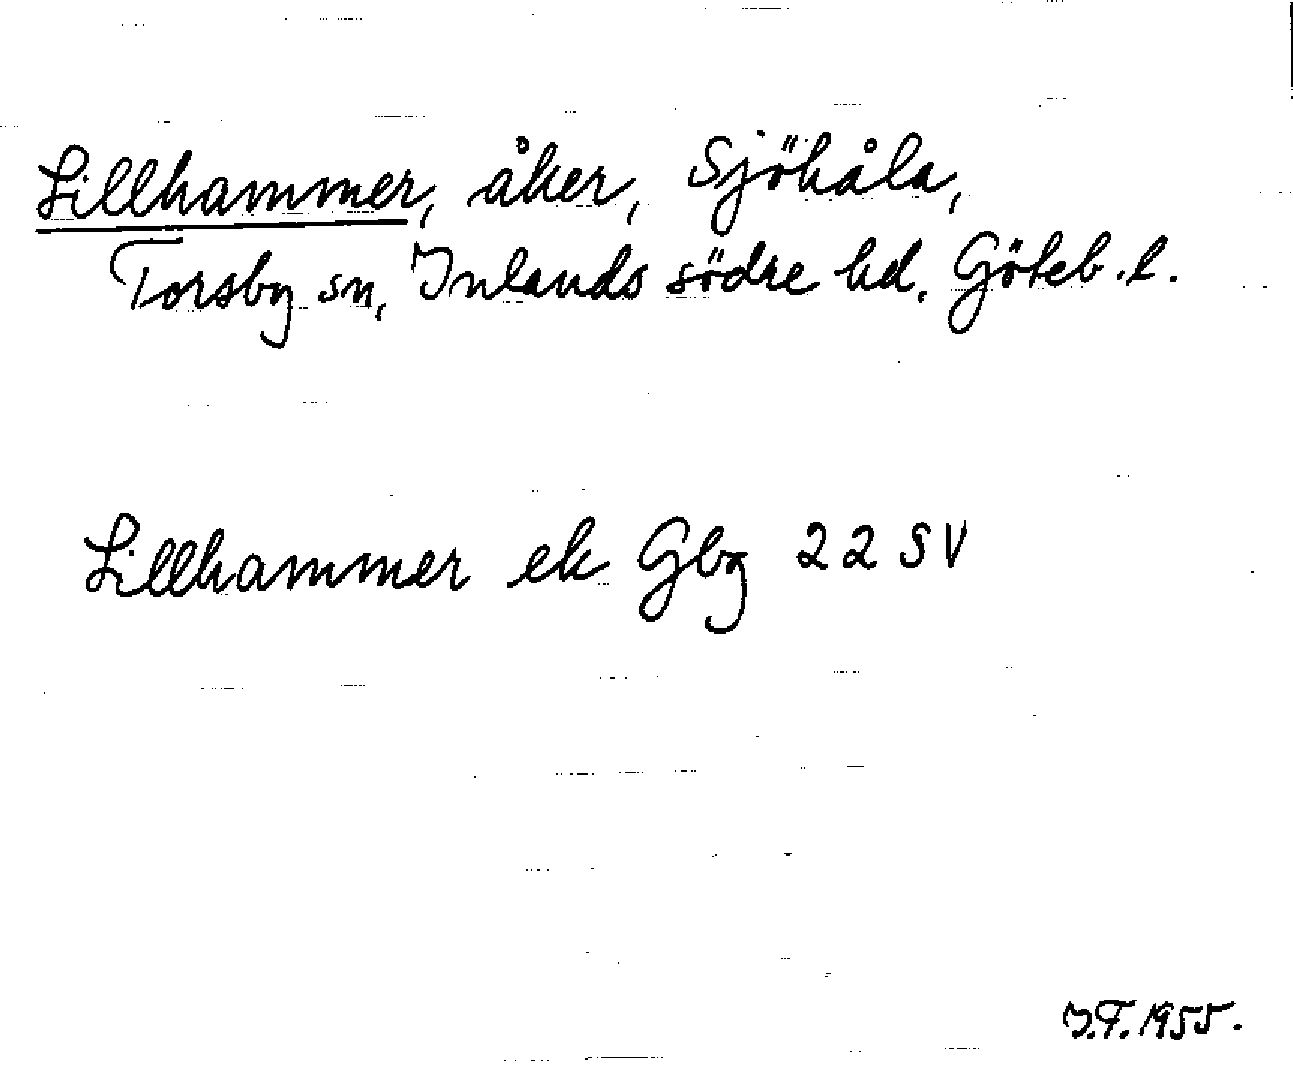 Lillhammer, åker, Sjöhåla,
Torsby sn, Inlands södre hd. Göteb. l.
Lillhammer ek Gbg 22 SV
I.F. 1955.